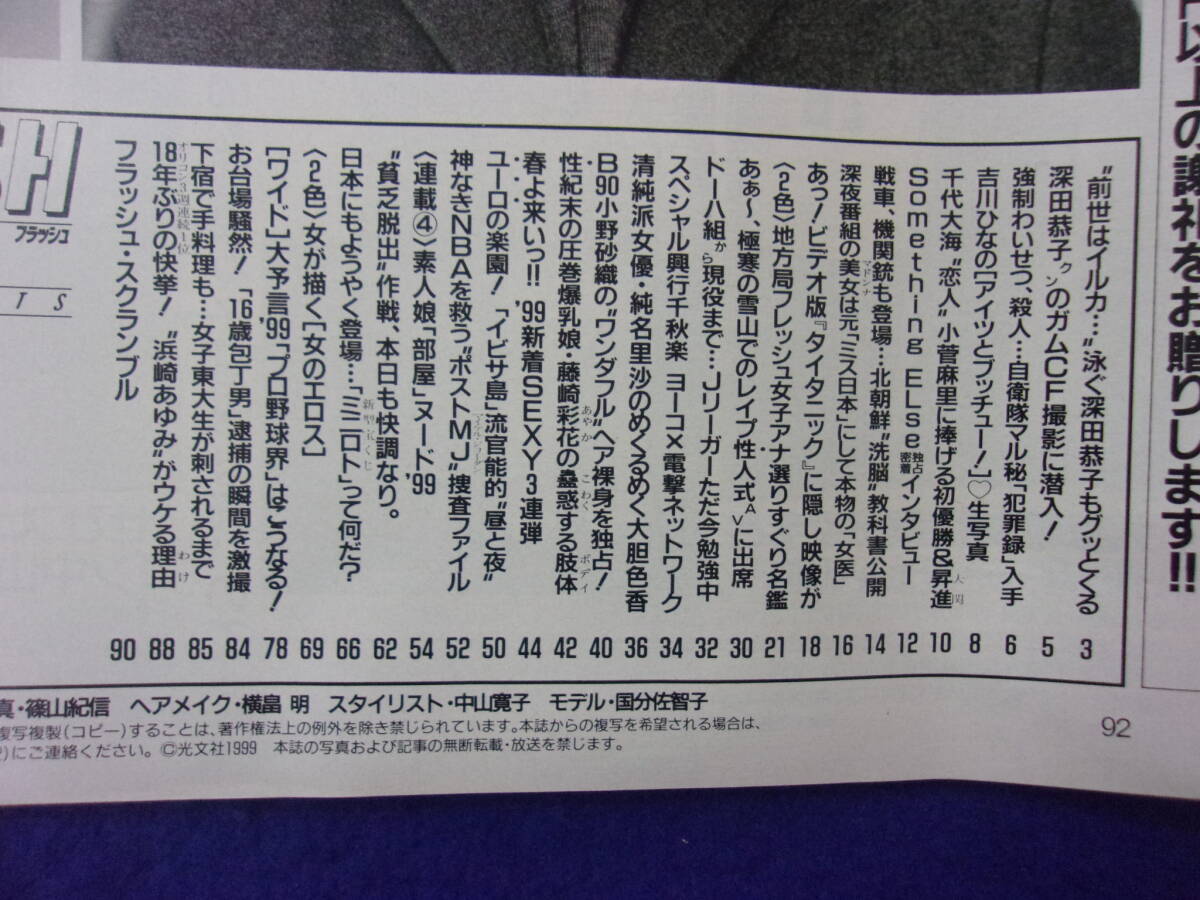 日以上の謝礼をお贈りします!!
SH
フラッシュ
TS
“前世はイルカ…”泳ぐ深田恭子もグッとくる 3
深田恭子クンのガムCF撮影に潜入! 5
強制わいせつ、殺人…自衛隊マル秘「犯罪録」入手 6
吉川ひなの[アイツとブッチュー!]♡生写真 8
千代大海“恋人”小菅麻里に捧げる初優勝&昇進大関 10
Something ELse独占密着インタビュー 12
戦車、機関銃も登場…北朝鮮“洗脳”教科書公開 14
深夜番組の美女マドンナは元「ミス日本」にして本物の「女医」 16
あっ!ビデオ版『タイタニック』に隠し映像が 18
〈2色〉地方局フレッシュ女子アナ選りすぐり名鑑 21
あぁ〜、極寒の雪山でのレイプ性人式〈AV〉に出席 30
ドーハ組から現役まで…Jリーガーただ今勉強中 32
スペシャル興行千秋楽 ヨーコ×電撃ネットワーク 34
清純派女優・純名里沙のめくるめく大胆色香 36
B90小野砂織の“ワンダフル”ヘア裸身を独占! 40
性紀末の圧巻爆乳娘・藤崎彩花あやかの蠱惑こわくする肢体ボディ 42
春よ来いっ!!'99新着SEXY3連弾 44
ユーロの楽園!「イビサ島」流官能的“昼と夜” 50
神なきNBAを救う“ポストMJ”捜査ファイル 52
〈連載④〉素人娘「部屋」ヌード'99 54
“貧乏脱出”作戦、本日も快調なり。 62
日本にもようやく登場…「ミニロト」新型宝くじって何だ? 66
〈2色〉女が描く[女のエロス] 69
[ワイド]大予言'99「プロ野球界」はこうなる! 78
お台場騒然!「16歳包丁男」逮捕の瞬間を激撮 84
下宿で手料理も…女子東大生が刺されるまで 85
18年ぶりの快挙!オリコン3週連続1位“浜崎あゆみ”がウケる理由わけ 88
フラッシュ・スクランブル 90
真・篠山紀信 ヘアメイク・横畠 明 スタイリスト・中山寛子 モデル・国分佐智子
複写複製(コピー)することは、著作権法上の例外を除き禁じられています。本誌からの複写を希望される場合は、
2)にご連絡ください。©光文社1999 本誌の写真および記事の無断転載・放送を禁じます。
92